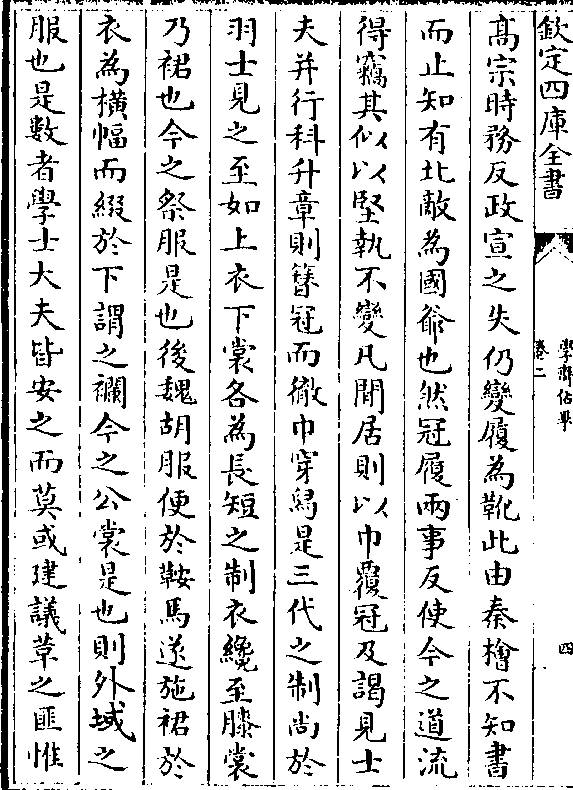 欽定四庫全書
學齋佔畢
卷二
四
髙宗時務反政宣之失仍變履為靴此由秦檜不知書
而止知有北敵為國爺也然冠履兩事反使今之道流
得竊其似以堅執不變凡閒居則以巾覆冠及謁見士
夫并行科升章則簪冠而徹巾穿舄是三代之制尚於
羽士見之至如上衣下裳各為長短之制衣纔至膝裳
乃裙也今之祭服是也後魏胡服便於鞍馬遂施裙於
衣為横幅而綴於下謂之襴今之公裳是也則外域之
服也是數者學士大夫皆安之而莫或建議革之匪惟